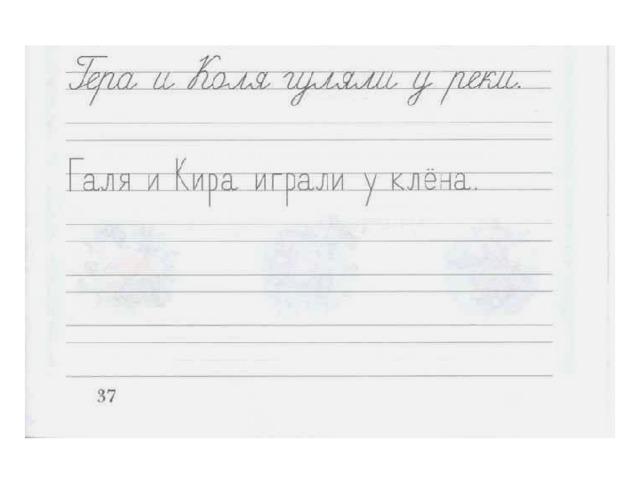 Гера и Коля гуляли у реки.
Галя и Кира играли у клёна.
37